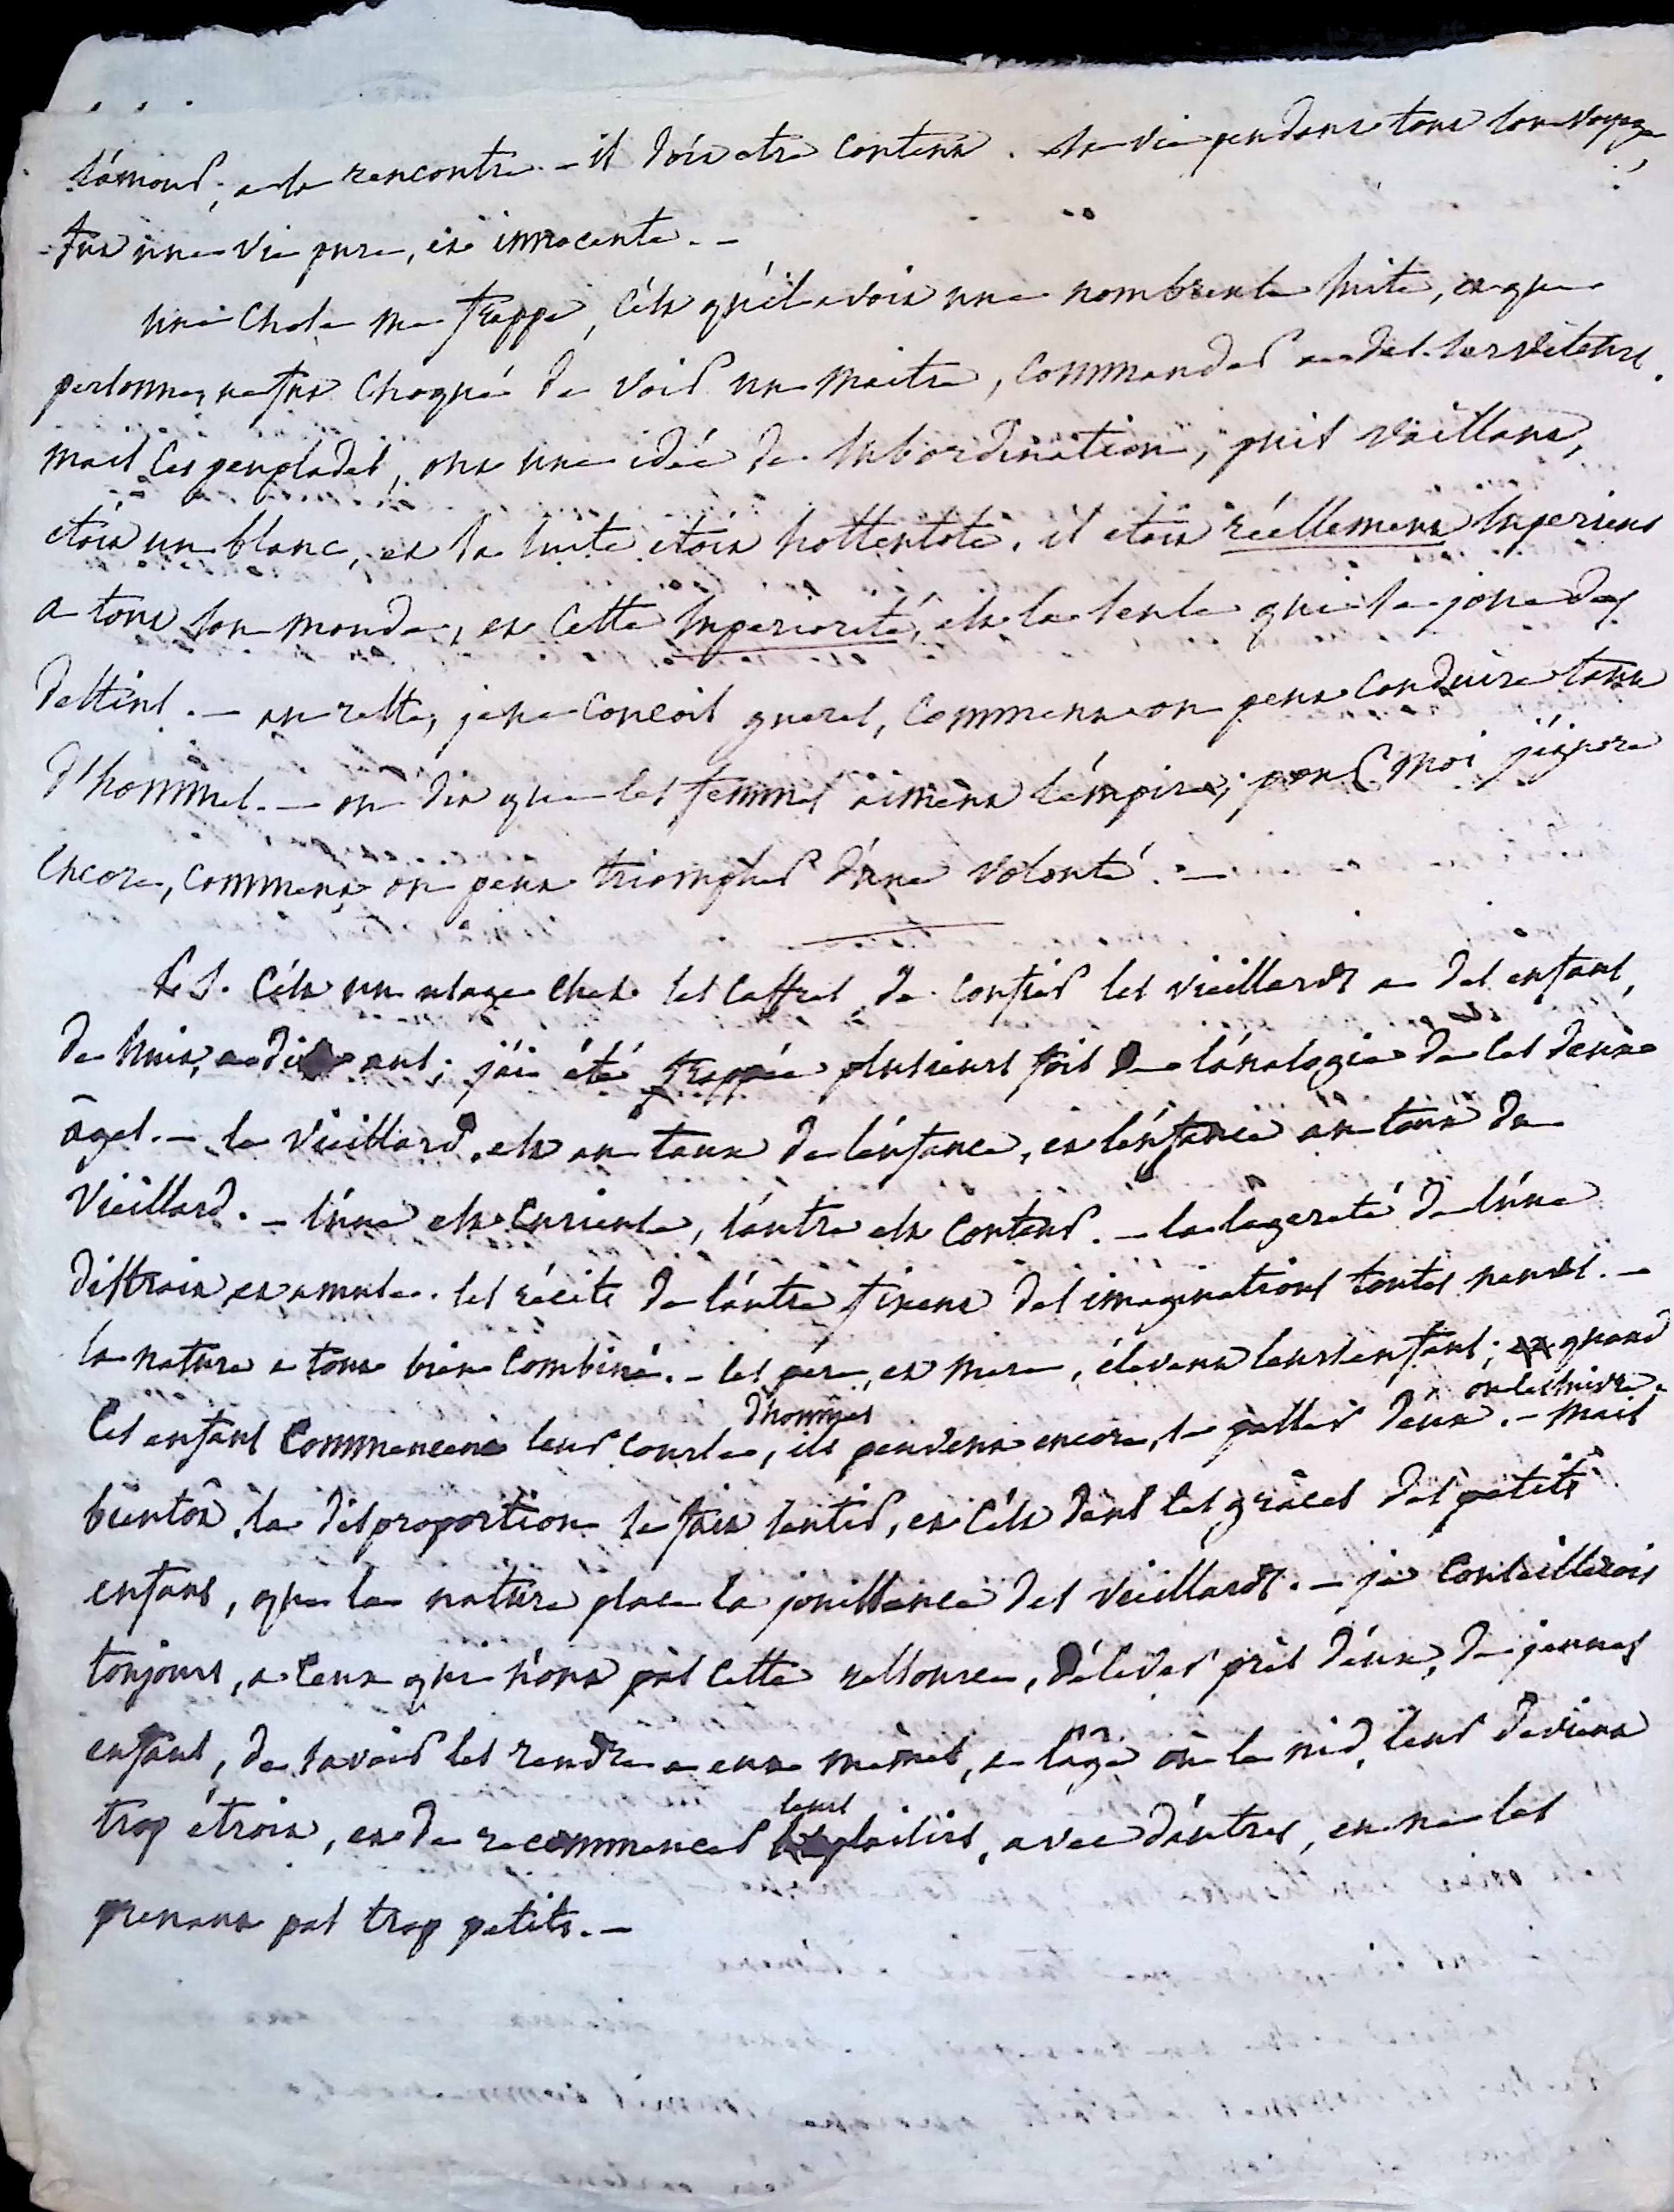 l'amour, a sa rencontre. – il doit etre content. sa vie pendant tout son voyage,
fut une vie pure, et innocente. –
une chose me frappe, c'est qu'il avoit une nombreuse suite, et que
personne, ne fut choqué de voir un maitre, commander a des serviteurs.
mais ces peuplades, ont une idée de subordination, puis vaillant,
étoit un blanc, et sa suite étoit hottentote. il etoit réellement superieur
a tout son monde, et cette superiorité, est la seule qui se joue des
destins. – au reste, je ne conçois gueres, comment on peut conduire tant
d'hommes. – on dit que les femmes aiment l'empire; pour moi j'ignore
encore, comment on peut triompher d'une volonté. –
P. S. c'est un usage chez les caffres, de confier les vieillards a des enfans,
de huit, a dix ans; j'ai été frappée plusieurs fois de l'analogie de ces deux
âges. – le vieillard, est au taux de l'enfance, et l'enfance au taux du
vieillard. – l'une est curieuse, l'autre est conteur. – la légereté de l'une
distrait et amuse. les récits de l'autre fixent des imaginations toutes neuves. –
la nature a tout bien combiné. – les pere, et mere, élevent leurs enfans; quand
ces enfans commencent leur course d'hommes, ils peuvent encore, se passer d'eux. ou les suivre. – mais
bientôt, la disproportion se fait sentir, et c'est dans les grâces des petits
enfans, que la nature place la jouissance des vieillards. – je conseillerois
toujours, a ceux qui n'ont pas cette ressource, d'élever près d'eux, de jeunes
enfans, de savoir les rendre a eux mêmes, a l'âge où le nid, leur devient
trop étroit, et de recommencer leurs plaisirs, avec d'autres, en ne les
prenant pas trop petits. –